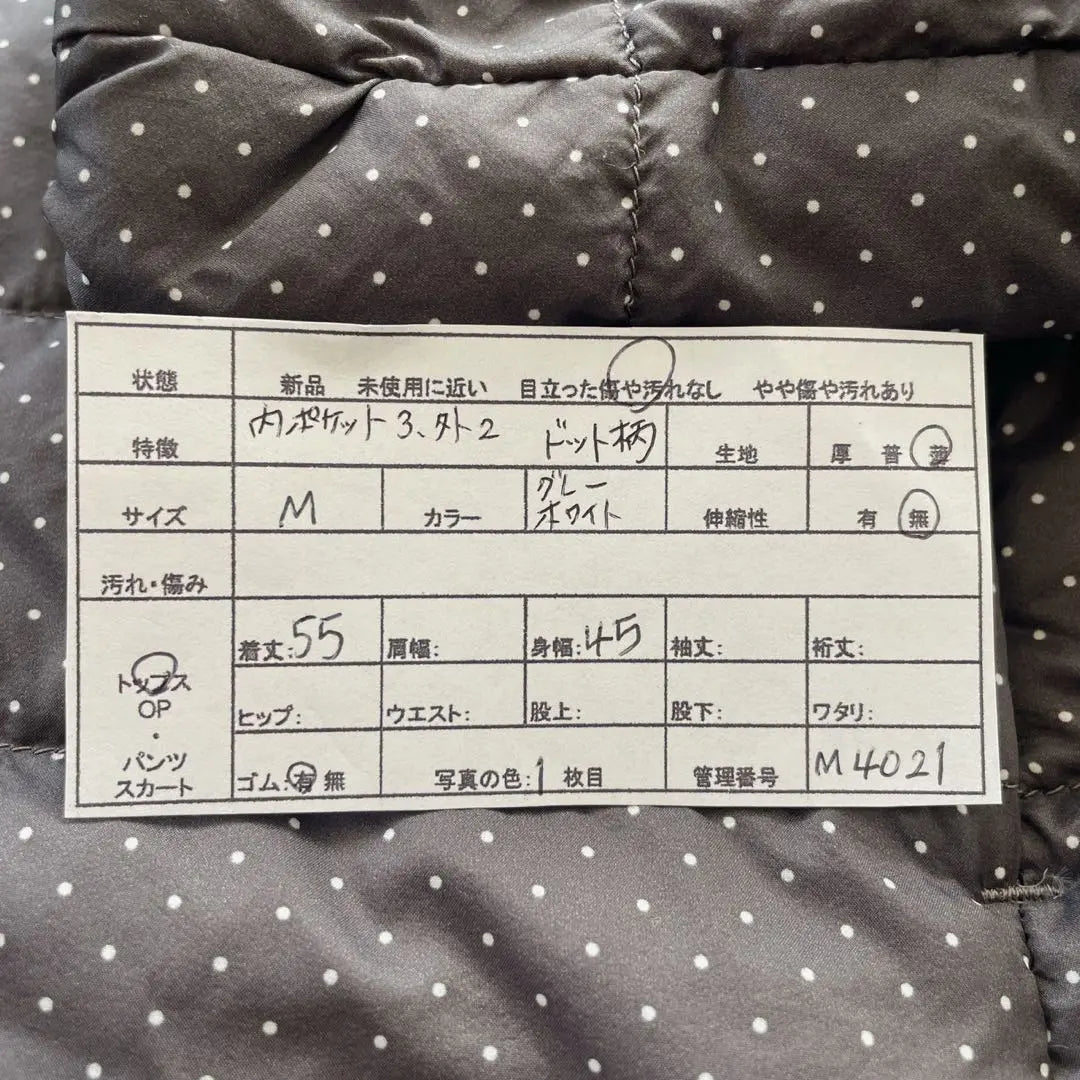 状態 新品 未使用に近い 目立った傷や汚れなし やや傷や汚れあり
特徴 内ポケット3、外2 ドット柄 生地 厚 普 薄
サイズ M カラー グレー
ホワイト 伸縮性 有 無
汚れ・傷み
着丈:55 肩幅: 身幅:45 袖丈: 裄丈:
トップス
OP
・
パンツ
スカート
ヒップ: ウエスト: 股上: 股下: ワタリ:
ゴム:有 無 写真の色:1 枚目 管理番号 M4021